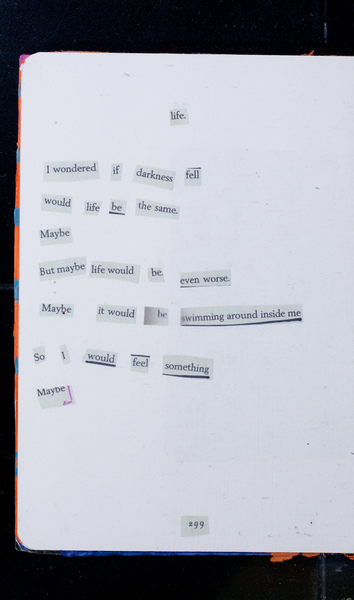 life.
I wondered if darkness fell
would life be the same.
Maybe
But maybe life would be. even worse.
Maybe it would be swimming around inside me
So I would feel something
Maybe
299